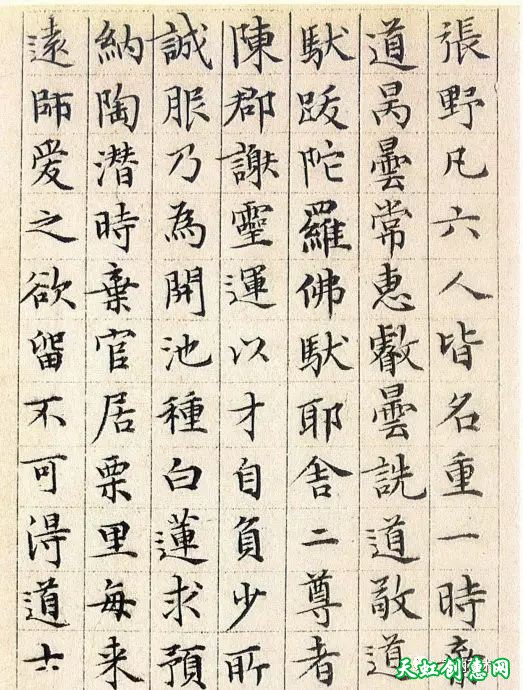 張野凡六人皆名重一時
道昺曇常惠叡曇詵道敬道
馱跋陀羅佛馱耶舎二尊者
陳郡謝靈運以才自負少所
誠服乃為開池種白蓮求預
納陶潜時棄官居栗里每来
遠師愛之欲留不可得道士
天虹创意网